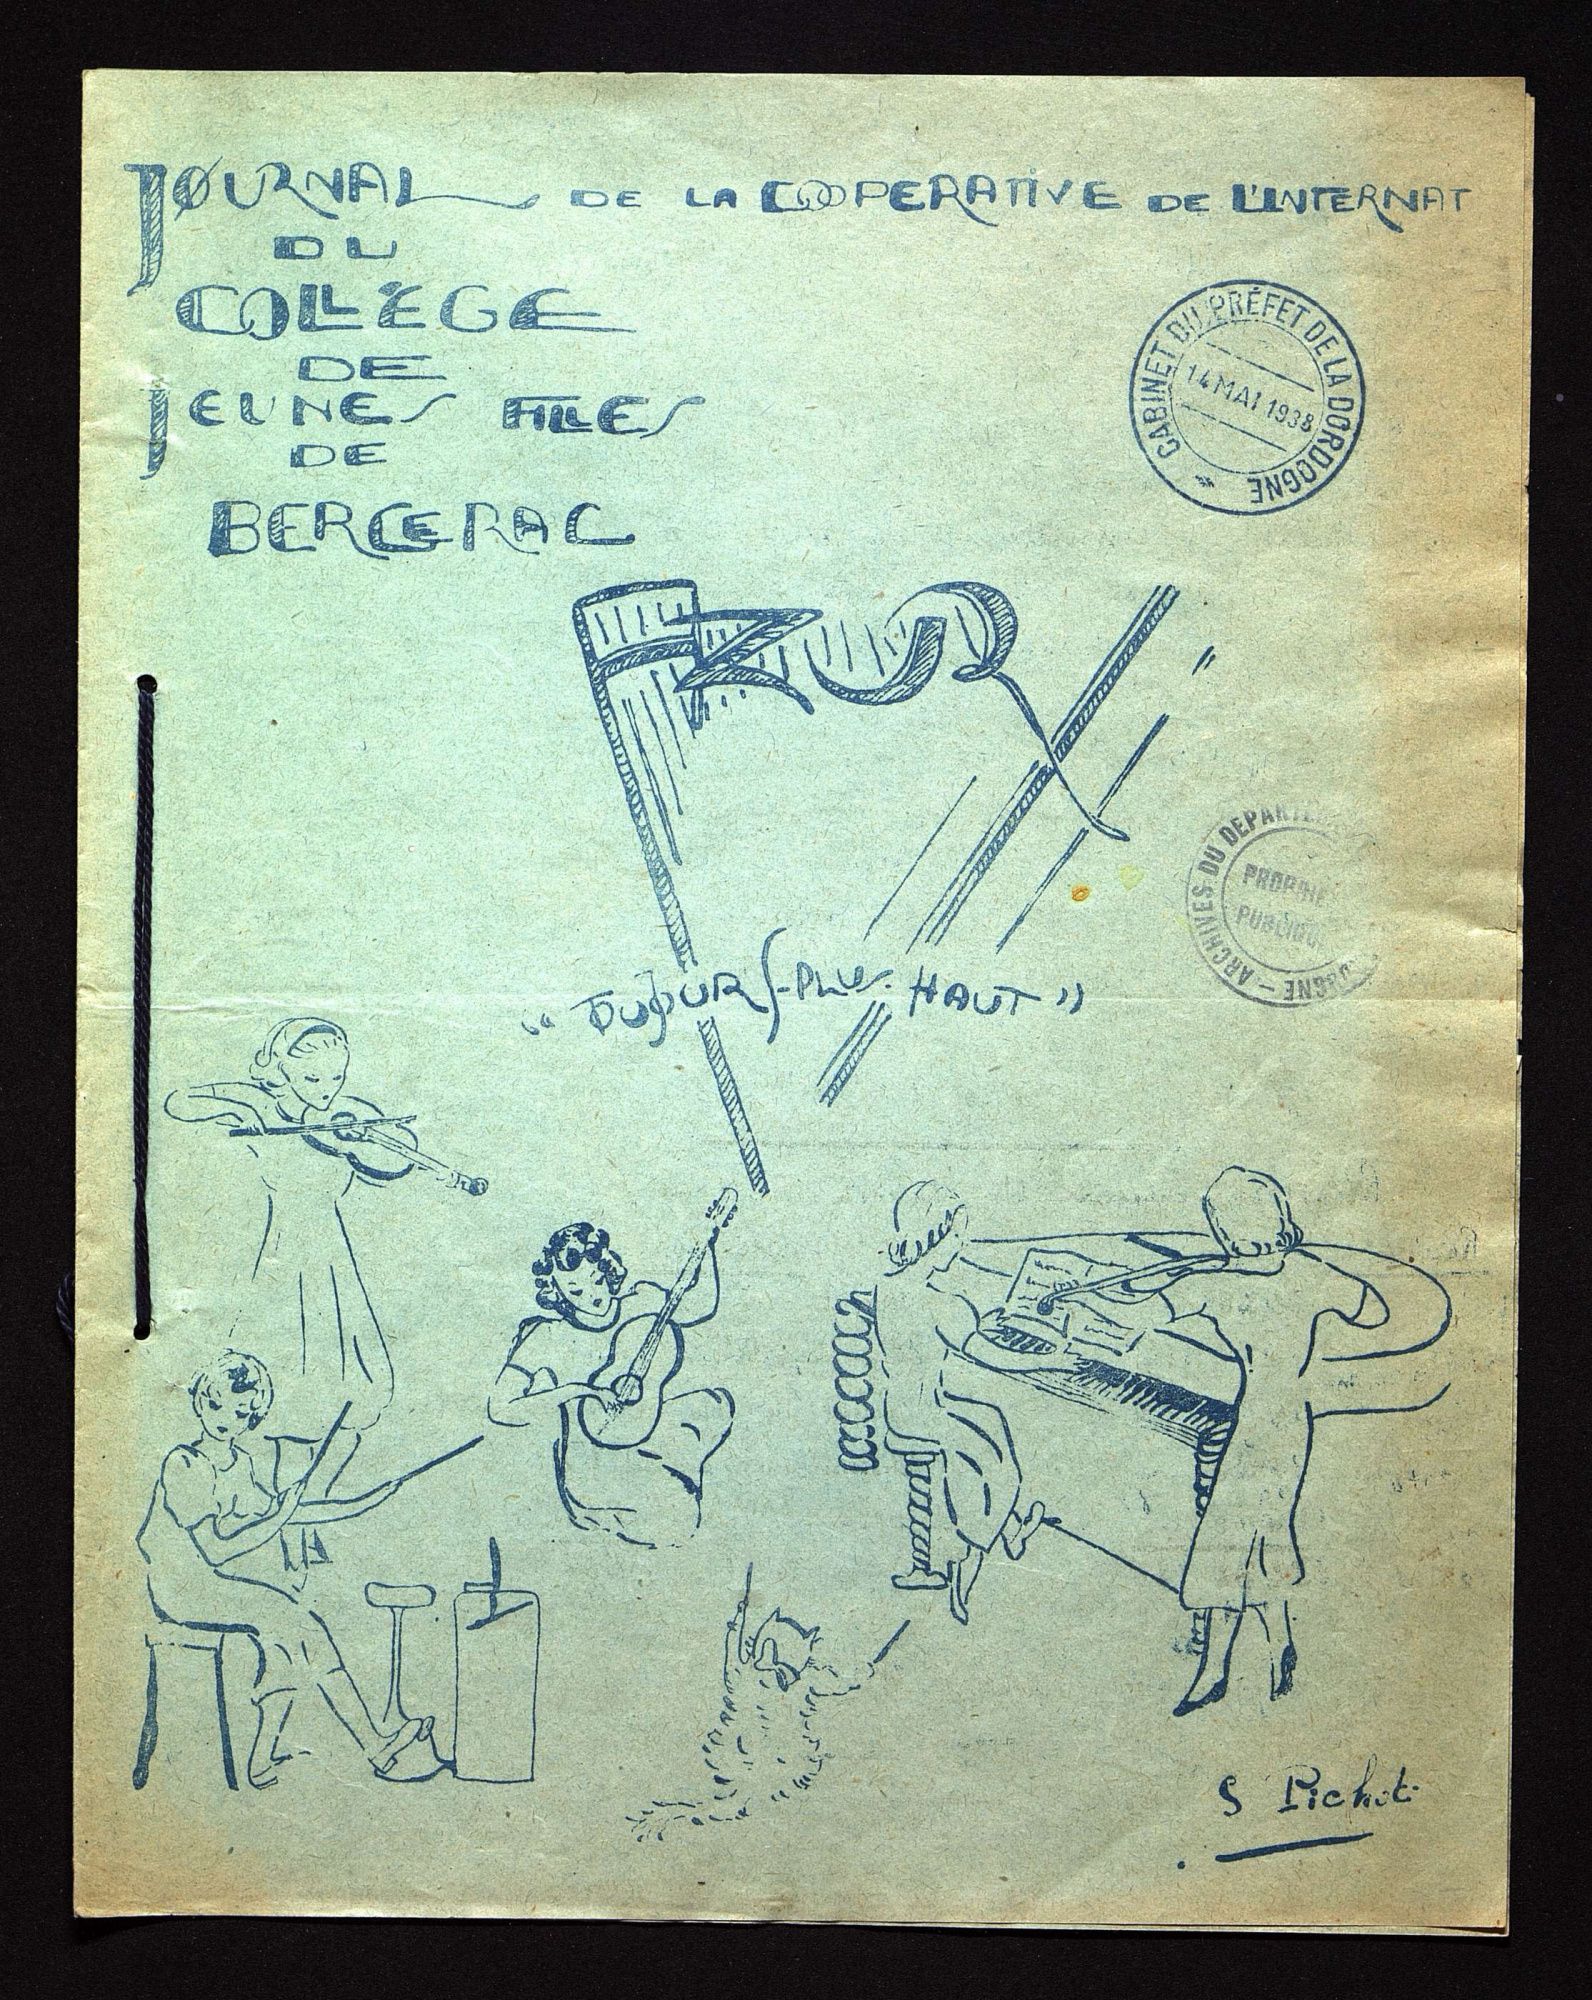 JOURNAL DE LA COOPERATIVE DE L'INTERNAT
DU
COLLÈGE
DE
JEUNES FILLES
DE
BERGERAC
CABINET DU PRÉFET DE LA DORDOGNE
14 MAI 1938
AZUR
ARCHIVES DU DEPARTE
PROPRIE
PUBLIQU
OGNE
"TOUJOURS-PLUS-HAUT"
S Pichot